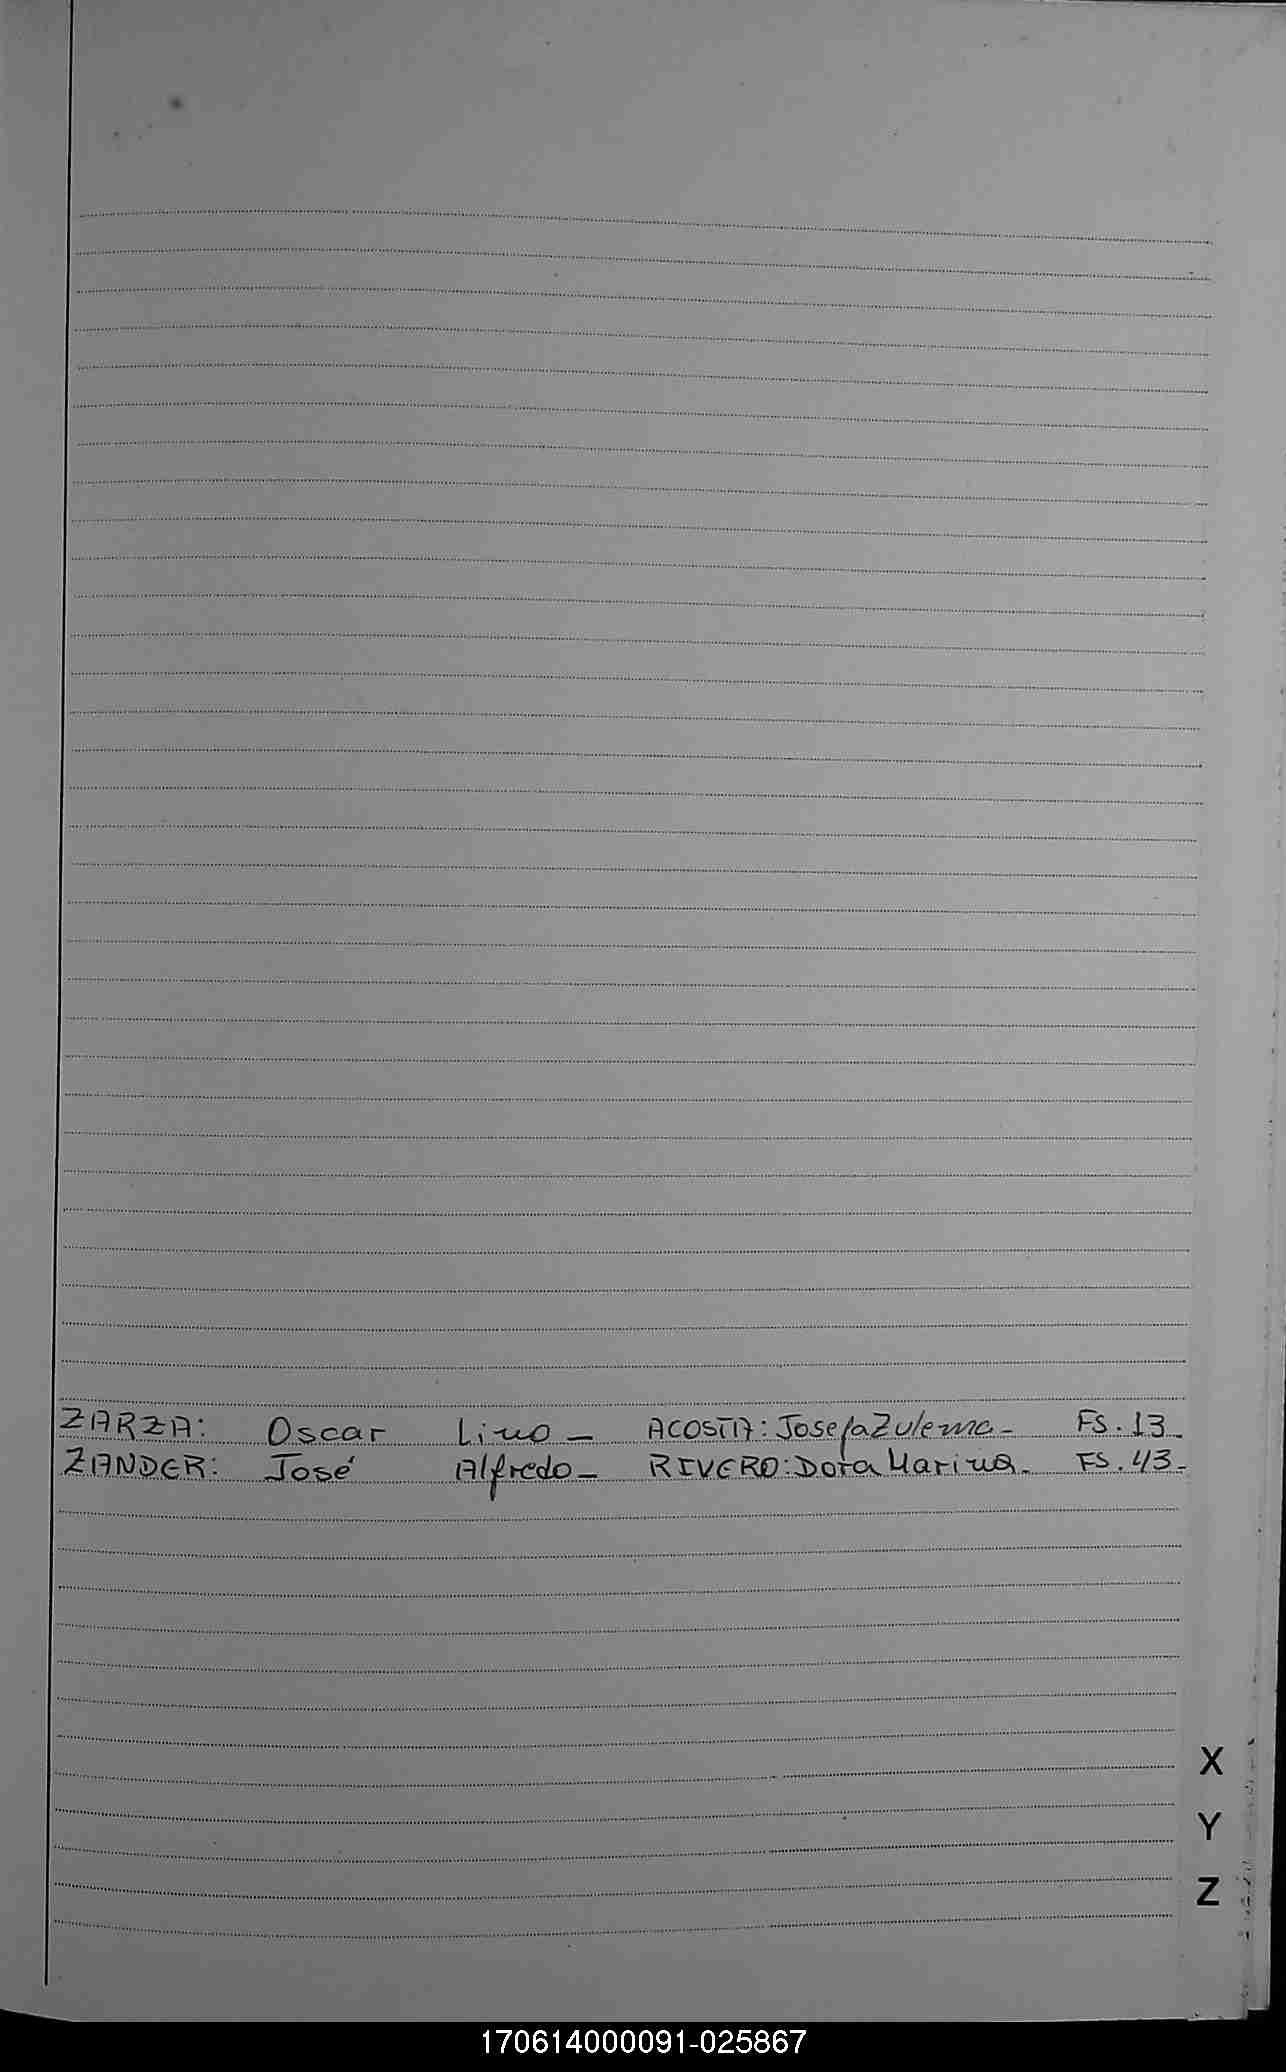 ZARZA: Oscar Lino - ACOSTA: Josefa Zulema - FS. 13 -
ZANDER: José Alfredo - RIVERO: Dora Marina - FS. 43 -
X
Y
Z
170614000091-025867